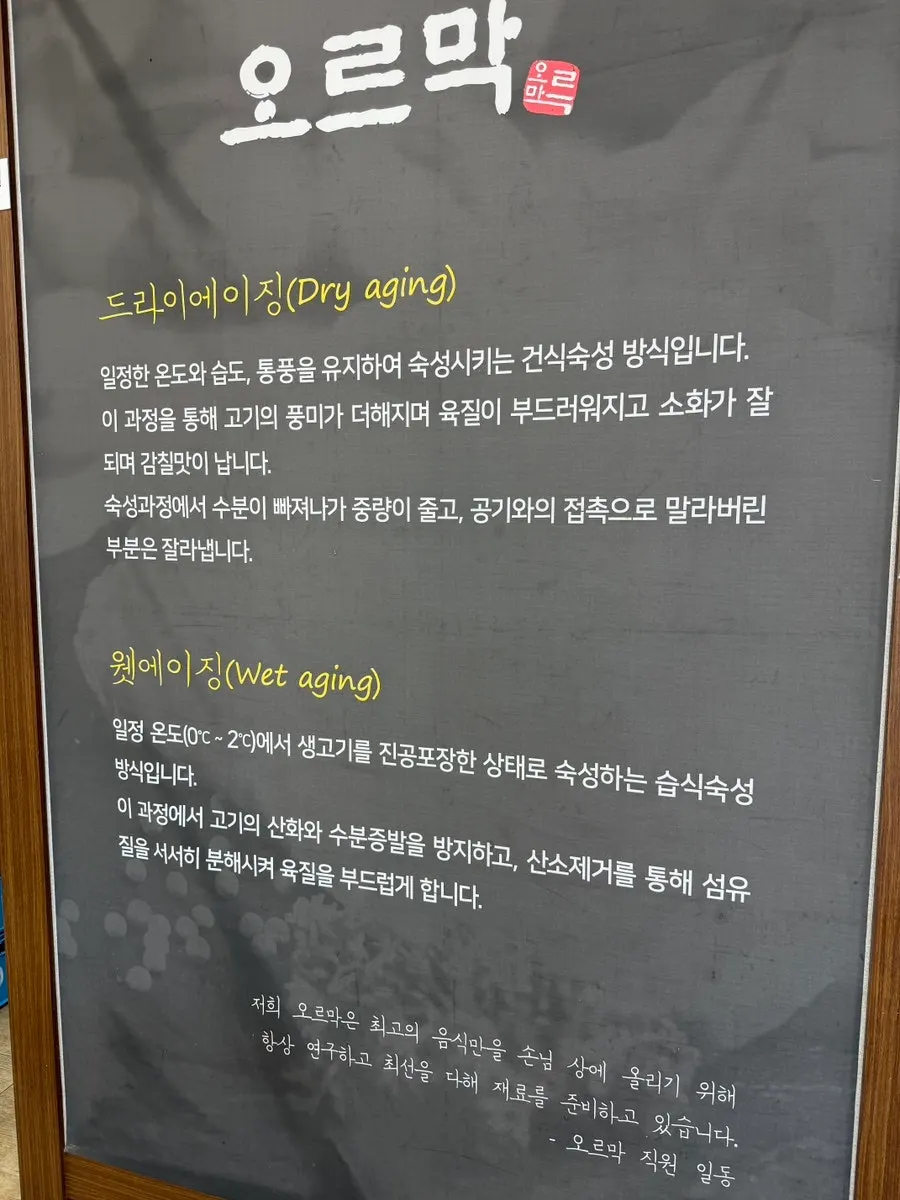 오르막
오르
막
드라이에이징(Dry aging)
일정한 온도와 습도, 통풍을 유지하여 숙성시키는 건식숙성 방식입니다.
이 과정을 통해 고기의 풍미가 더해지며 육질이 부드러워지고 소화가 잘
되며 감칠맛이 납니다.
숙성과정에서 수분이 빠져나가 중량이 줄고, 공기와의 접촉으로 말라버린
부분은 잘라냅니다.
웻에이징(Wet aging)
일정 온도(0℃ ~ 2℃)에서 생고기를 진공포장한 상태로 숙성하는 습식숙성
방식입니다.
이 과정에서 고기의 산화와 수분증발을 방지하고, 산소제거를 통해 섬유
질을 서서히 분해시켜 육질을 부드럽게 합니다.
저희 오르막은 최고의 음식만을 손님 상에 올리기 위해
항상 연구하고 최선을 다해 재료를 준비하고 있습니다.
- 오르막 직원 일동